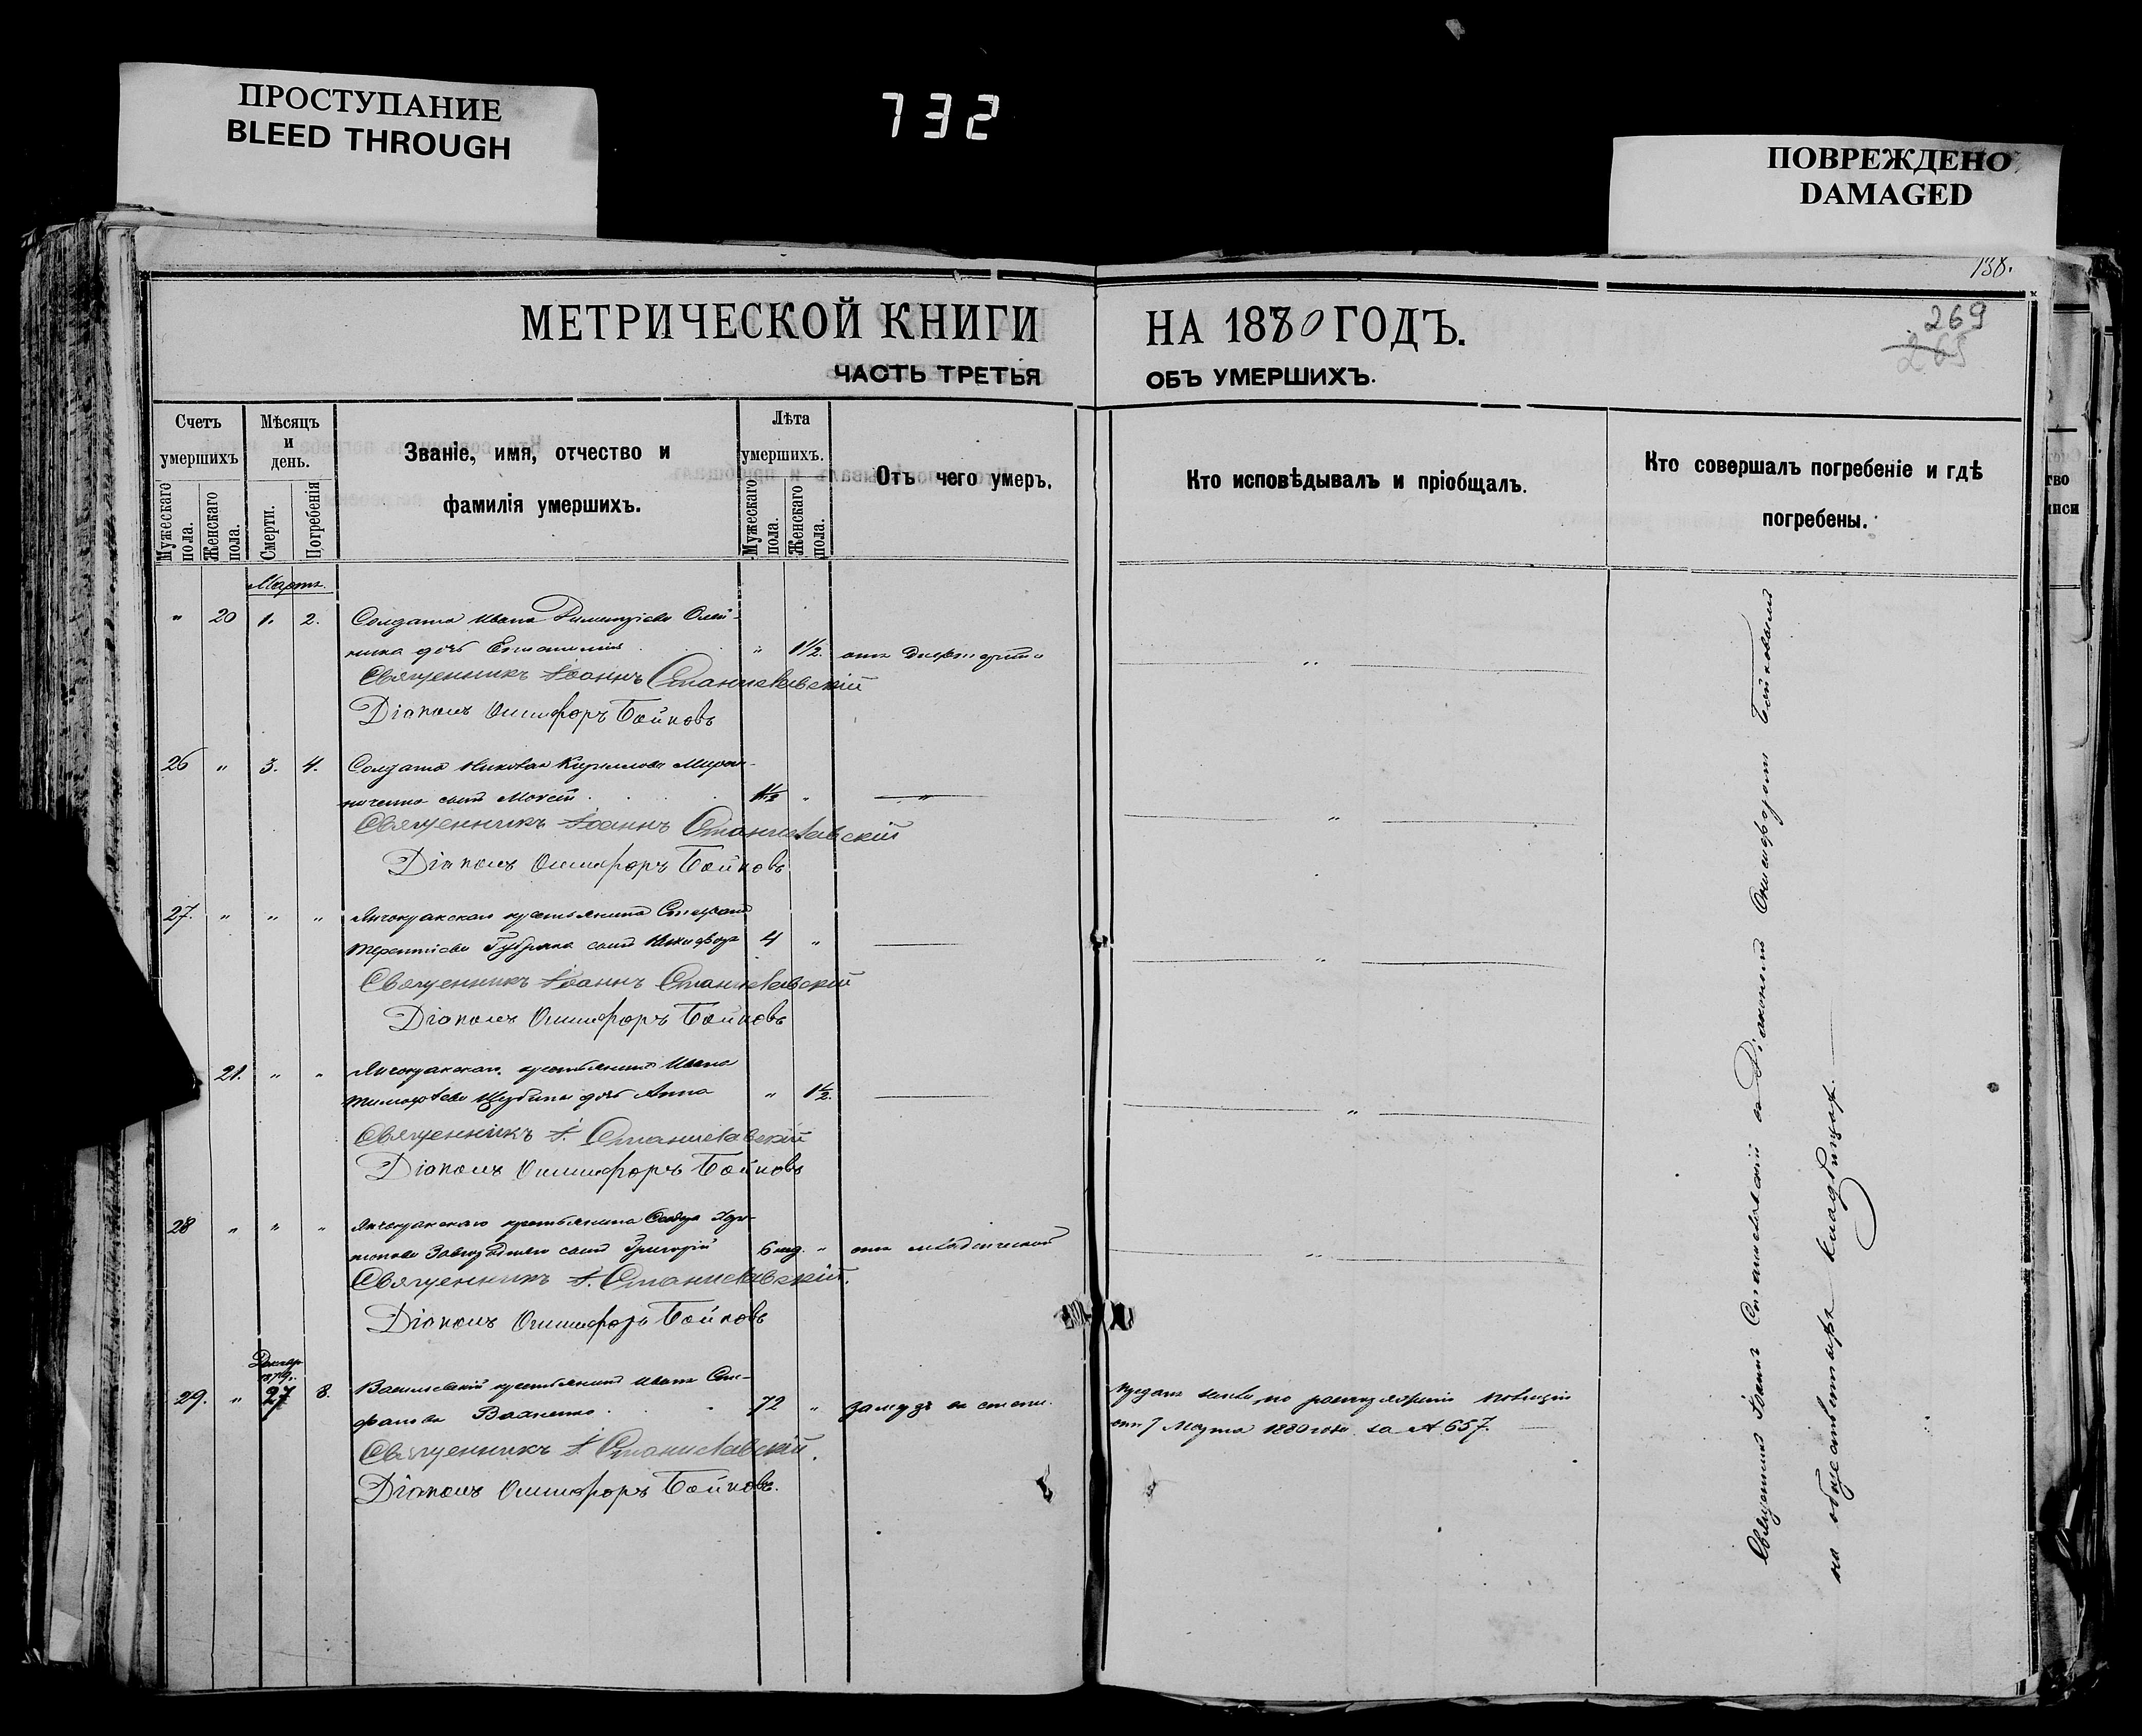 ПРОСТУПАНИЕ
BLEED THROUGH
732
ПОВРЕЖДЕНО
DAMAGED
138.
269
265
МЕТРИЧЕСКОЙ КНИГИ НА 1880 ГОДЪ.
ЧАСТЬ ТРЕТЬЯ ОБЪ УМЕРШИХЪ.
Счетъ умершихъ
Мужескаго пола.
Женскаго пола.
Мѣсяцъ и день.
Смерти.
Погребенія
Званіе, имя, отчество и
фамилія умершихъ.
Лѣта умершихъ.
Мужескаго пола.
Женскаго пола.
Отъ чего умеръ.
Кто исповѣдывалъ и пріобщалъ.
Кто совершалъ погребеніе и гдѣ
погребены.
Мартъ.
" 20 1. 2. Солдата Ивана Олей-
ника дочь " 1½. отъ
Священникъ Іоаннъ Станиславскій
Діаконъ Онисифоръ Бойковъ
26 " 3. 4. Солдата Николая Кириллова Миро-
ниченка сынъ 1½ " "
Священникъ Іоаннъ Станиславскій
Діаконъ Онисифоръ Бойковъ
27. " " " крестьянина
Терентіева сынъ Никифоръ 4 "
Священникъ Іоаннъ Станиславскій
Діаконъ Онисифоръ Бойковъ
21. " " крестьянина Ивана
Тимофѣева дочь Анна " 1½.
Священникъ І. Станиславскій
Діаконъ Онисифоръ Бойковъ
28 " " " крестьянина
сынъ Григорій 6 нед. " отъ младенческой
Священникъ І. Станиславскій.
Діаконъ Онисифоръ Бойковъ
Декабр.
1879г.
29. " 27 8. Васильевскій крестьянинъ Иванъ Сте-
фановъ 72 " замерзъ въ степи.
преданъ землѣ по распоряженію полиціи
отъ 7 Марта 1880 года за № 657.
Священникъ І. Станиславскій.
Діаконъ Онисифоръ Бойковъ.
Священникъ Іоаннъ Станиславскій съ Діакономъ Онисифоромъ Бойковымъ
на кладбищахъ